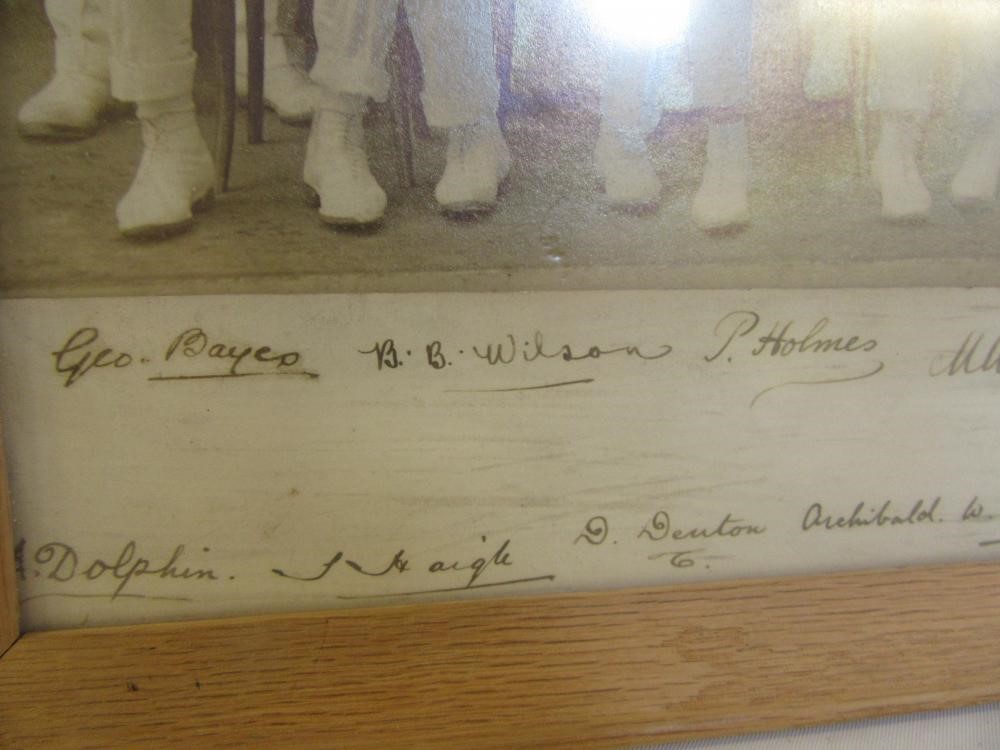 Geo. Bayes B. B. Wilson P. Holmes
Dolphin. J Haigh D. Denton Archibald. W.